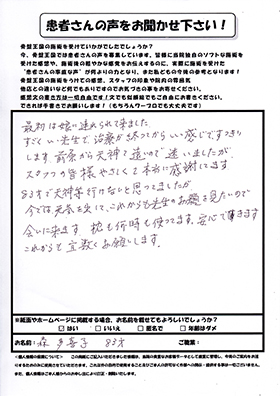 患者さんの声をお聞かせ下さい！
骨盤王国の施術を受けていかがでしたでしょうか？
今、骨盤王国では患者さんの声を募集しています。皆様に当院独自のソフトな施術を
受けた感想や、施術後の軽やかな感覚をお伝えするのに、実際に施術を受けた
“患者さんの率直な声”が何よりの力となり、また私どもの今後の参考となります！
骨盤王国の施術をうけての感想、スタッフの印象や院内の雰囲気
他店との違いなど何でもありますのでお気づきの事をお寄せください。
最初は娘に連れられて来ました
すごくいい先生で、治療が終ってからいい感じですっきり
します。前原から天神まで遠いので迷いましたが、
スタッフの皆様やさしくて本当に感謝してます
83才で天神等行けないと思ってましたが
今では元気を出して、これからも先生のお顔を見たいので
会いに来ます。枕も何時も使ってます。安心して頂きます
これからも宜敷くお願いします。
※紙面やホームページに掲載する場合、お名前を載せてもよろしいでしょうか？
☑はい □いいえ □匿名で □年齢はダメ
お名前： 森 多喜子 83才 ご職業：